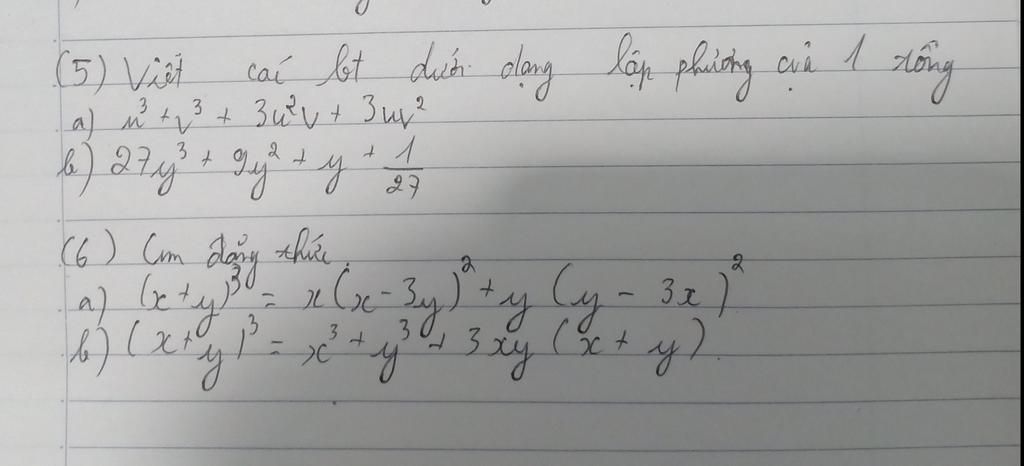 (5) Viết các bt dưới dạng lập phương của 1 tổng
a) u³ + v³ + 3u²v + 3uv²
b) 27y³ + 9y² + y + 1/27
(6) Cm đẳng thức.
a) (x+y)³ = x(x - 3y)² + y(y - 3x)²
b) (x + y)³ = x³ + y³ + 3xy(x + y).